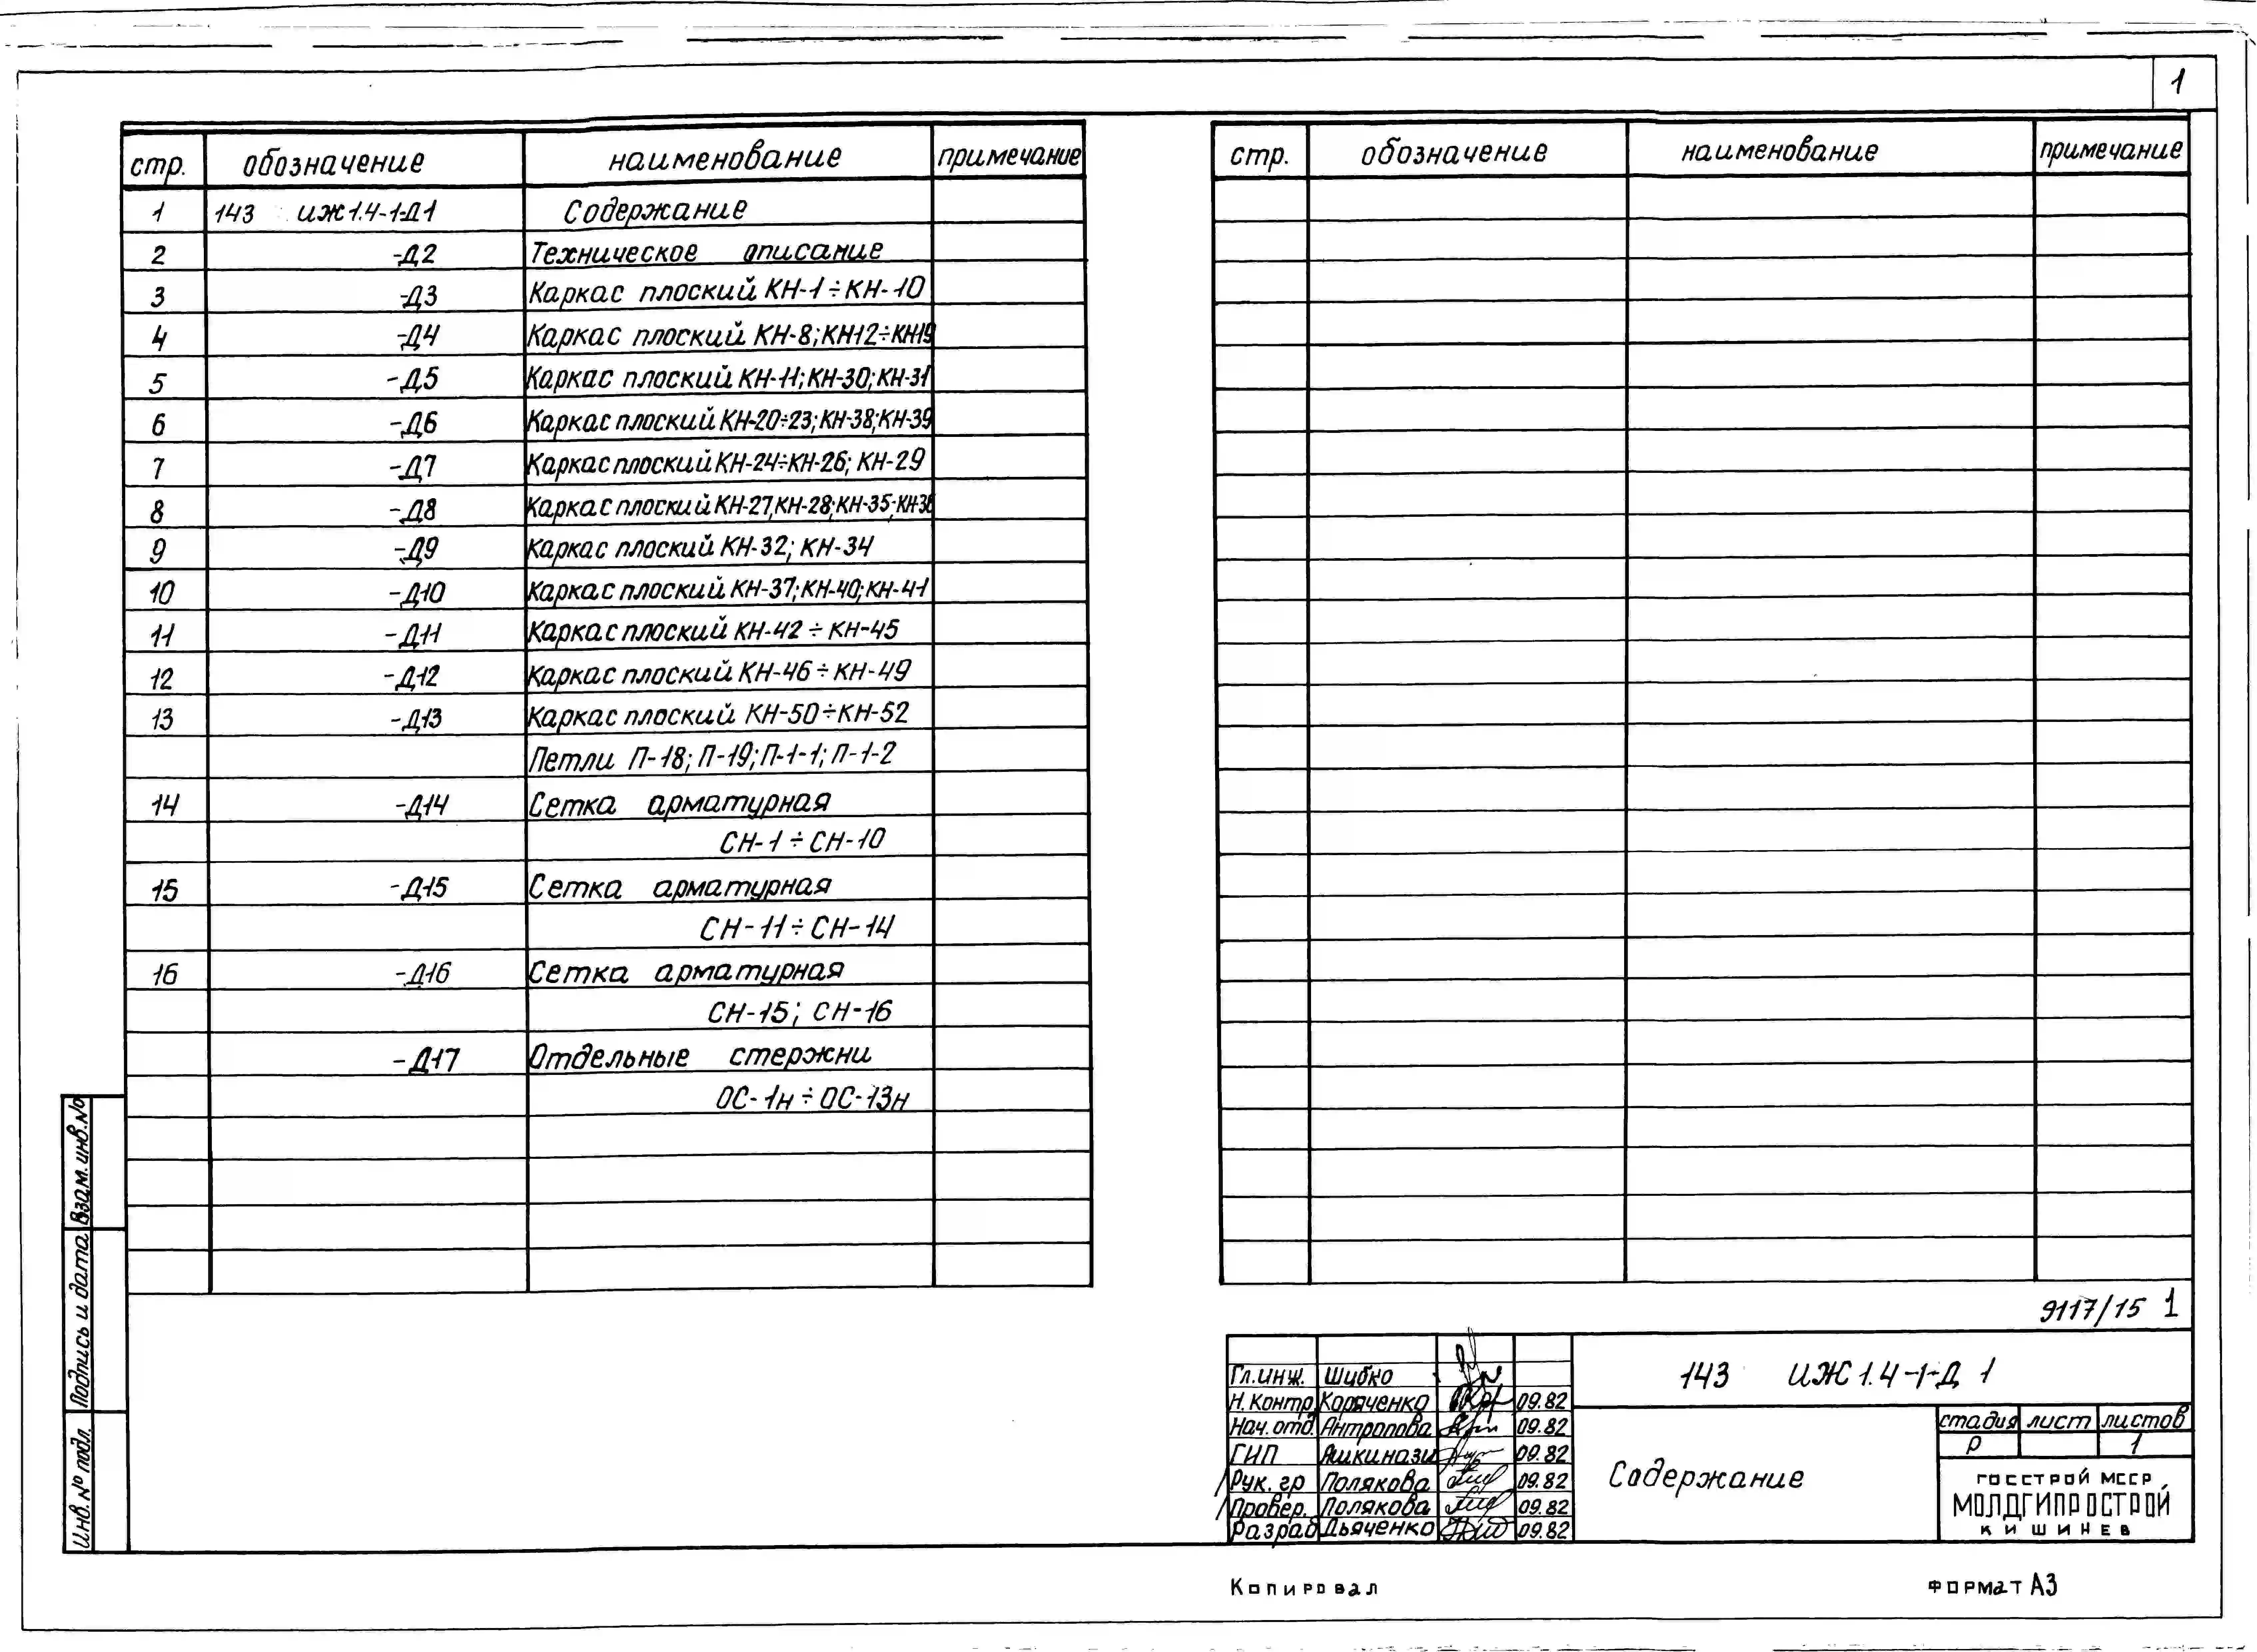 1
стр. обозначение наименование примечание
1 143 ИЖ1.4-1-Д1 Содержание
2 -Д2 Техническое описание
3 -Д3 Каркас плоский КН-1÷КН-10
4 -Д4 Каркас плоский КН-8;КН12÷КН19
5 -Д5 Каркас плоский КН-11;КН-30;КН-31
6 -Д6 Каркас плоский КН-20÷23;КН-38;КН-39
7 -Д7 Каркас плоский КН-24÷КН-26; КН-29
8 -Д8 Каркас плоский КН-27,КН-28;КН-35;КН-36
9 -Д9 Каркас плоский КН-32; КН-34
10 -Д10 Каркас плоский КН-37;КН-40;КН-41
11 -Д11 Каркас плоский КН-42÷КН-45
12 -Д12 Каркас плоский КН-46÷КН-49
13 -Д13 Каркас плоский КН-50÷КН-52
Петли П-18; П-19;П-1-1; П-1-2
14 -Д14 Сетка арматурная
СН-1÷СН-10
15 -Д15 Сетка арматурная
СН-11÷СН-14
16 -Д16 Сетка арматурная
СН-15; СН-16
-Д17 Отдельные стержни
ОС-1н÷ОС-13н
стр. обозначение наименование примечание
Взам. инв.№
Подпись и дата
Инв.№ подл.
9117/15 1
Гл.инж. Шибко
Н.Контр Коряченко 09.82
Нач.отд. Антропова 09.82
ГИП Яшкинази 09.82
Рук.гр Полякова 09.82
Провер. Полякова 09.82
Разраб Дьяченко 09.82
143 ИЖ1.4-1-Д 1
Содержание
стадия лист листов
Р 1
ГОССТРОЙ МССР
МОЛДГИПРОСТРОЙ
КИШИНЕВ
Копировал
Формат А3